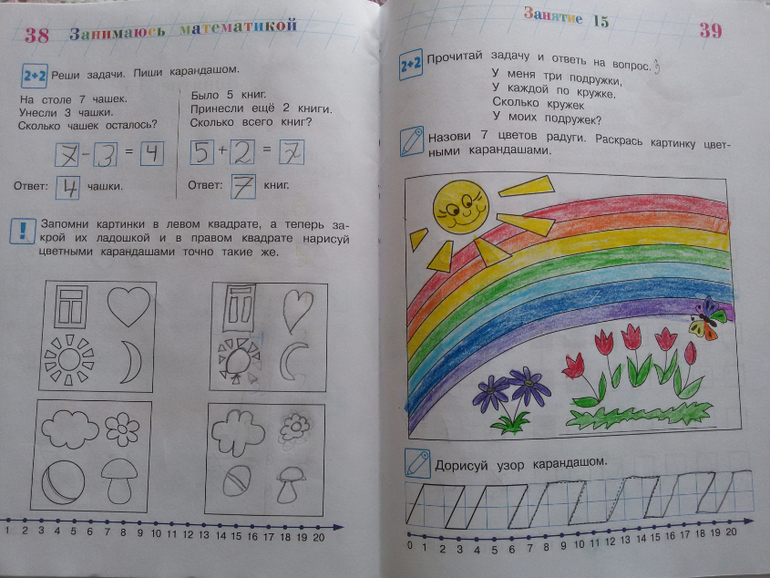 38 Занимаюсь математикой
2+2 Реши задачи. Пиши карандашом.
На столе 7 чашек.
Унесли 3 чашки.
Сколько чашек осталось?
7 - 3 = 4
Ответ: 4 чашки.
Было 5 книг.
Принесли ещё 2 книги.
Сколько всего книг?
5 + 2 = 7
Ответ: 7 книг.
! Запомни картинки в левом квадрате, а теперь за-
крой их ладошкой и в правом квадрате нарисуй
цветными карандашами точно такие же.
1 2 3 4 5 6 7 8 9 10 11 12 13 14 15 16 17 18 19 20
Занятие 15 39
2+2 Прочитай задачу и ответь на вопрос. 3
У меня три подружки,
У каждой по кружке.
Сколько кружек
У моих подружек?
Назови 7 цветов радуги. Раскрась картинку цвет-
ными карандашами.
Дорисуй узор карандашом.
0 1 2 3 4 5 6 7 8 9 10 11 12 13 14 15 16 17 18 19 20